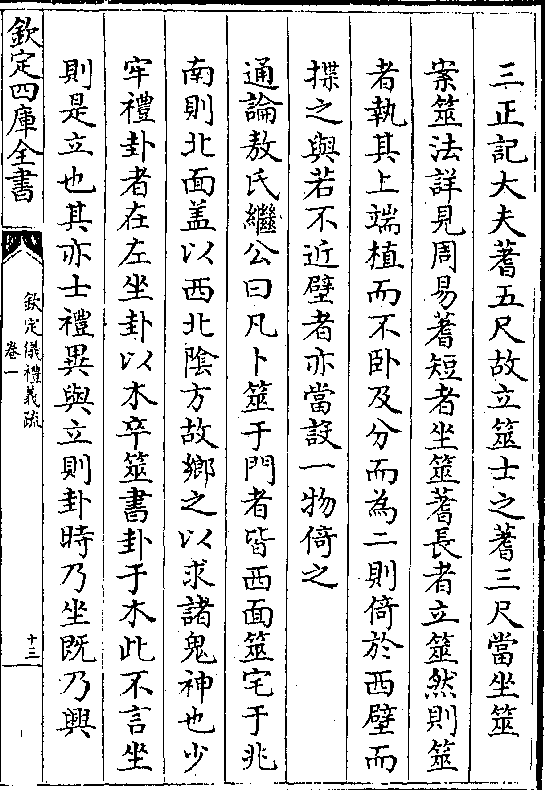 三正記大夫蓍五尺故立筮士之蓍三尺當坐筮
案筮法詳見周易蓍短者坐筮蓍長者立筮然則筮
者執其上端植而不卧及分而為二則倚於西壁而
揲之與若不近壁者亦當設一物倚之
通論敖氏繼公曰凡卜筮于門者皆西面筮宅于兆
南則北面盖以西北陰方故鄉之以求諸鬼神也少
牢禮卦者在左坐卦以木卒筮書卦于木此不言坐
則是立也其亦士禮異與立則卦時乃坐既乃興
欽定四庫全書
欽定儀禮義疏
卷一
十三